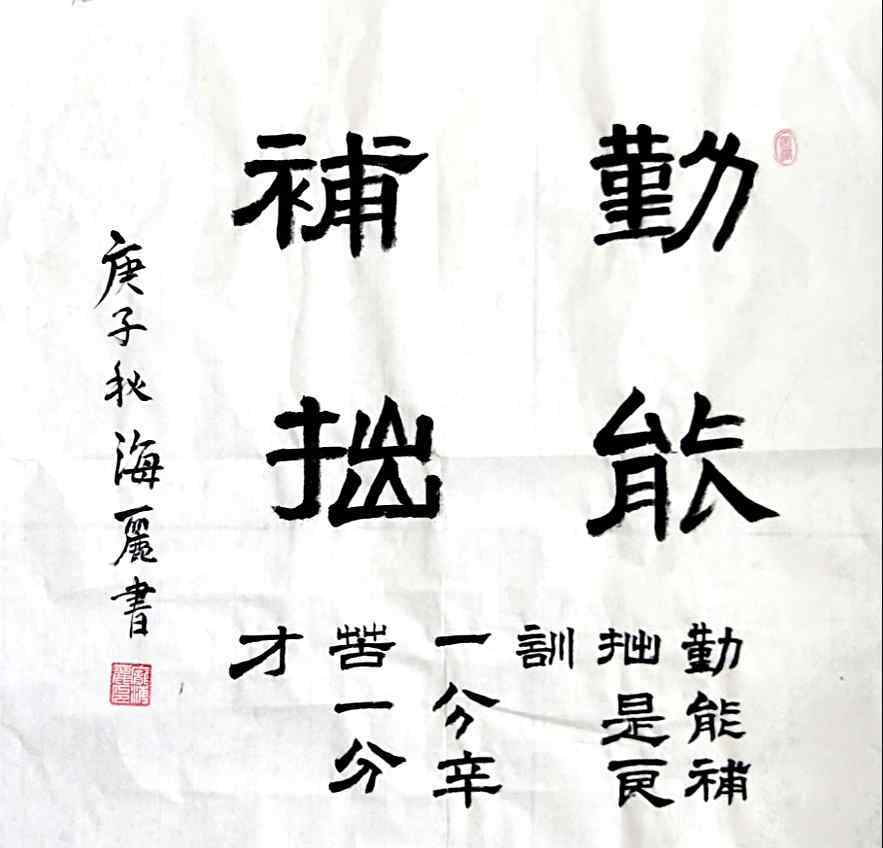 勤能
補拙
勤能補
拙是良
訓
一分辛
苦一分
才
庚子秋海麗書